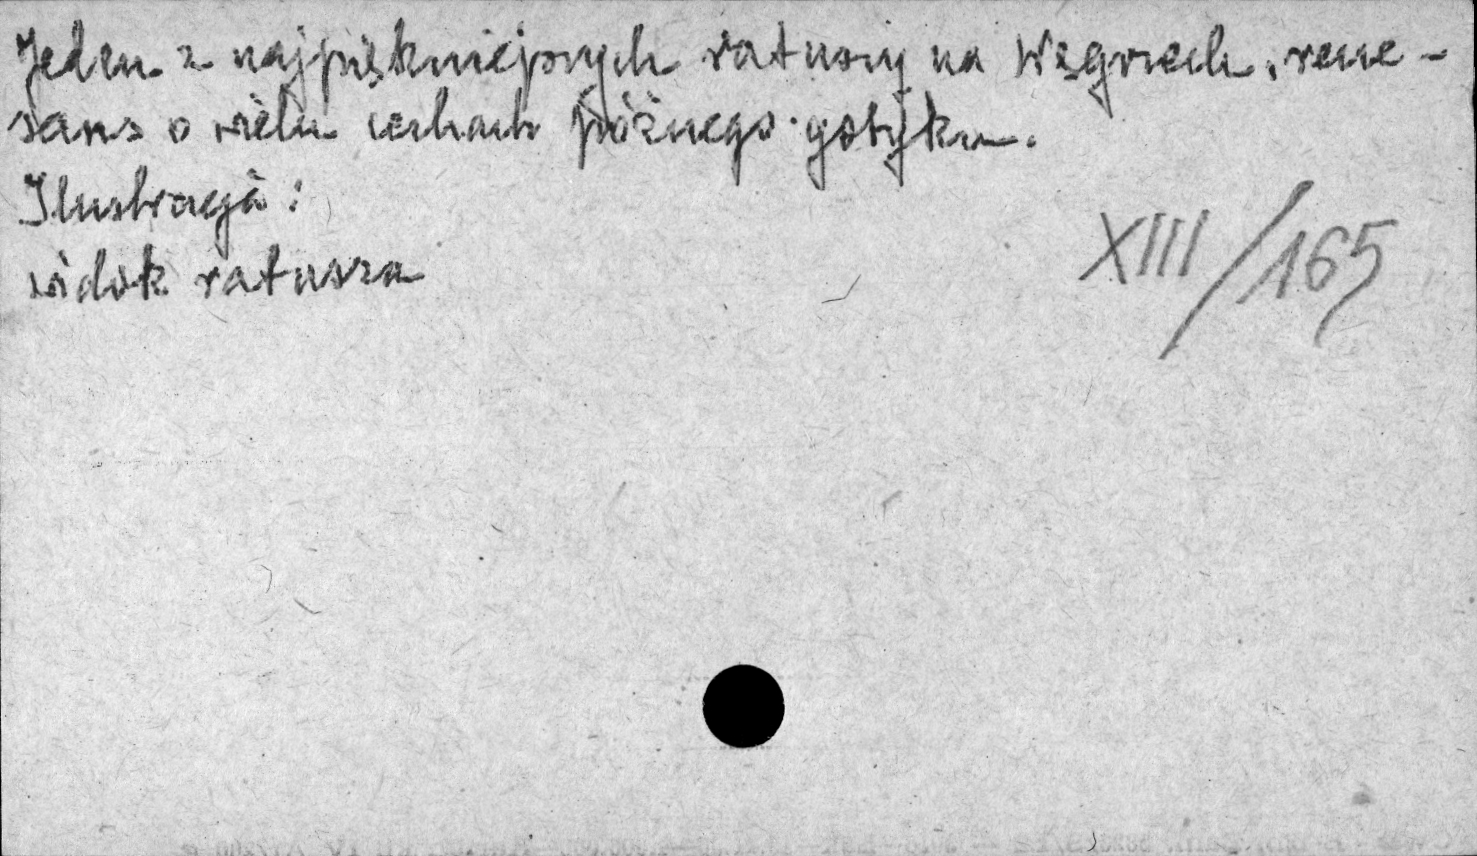 Jeden z najpiękniejszych ratuszy na Węgrzech, rene-
sans o wielu cechach późnego gotyku.
Ilustracja:
widok ratusza
XIII/165